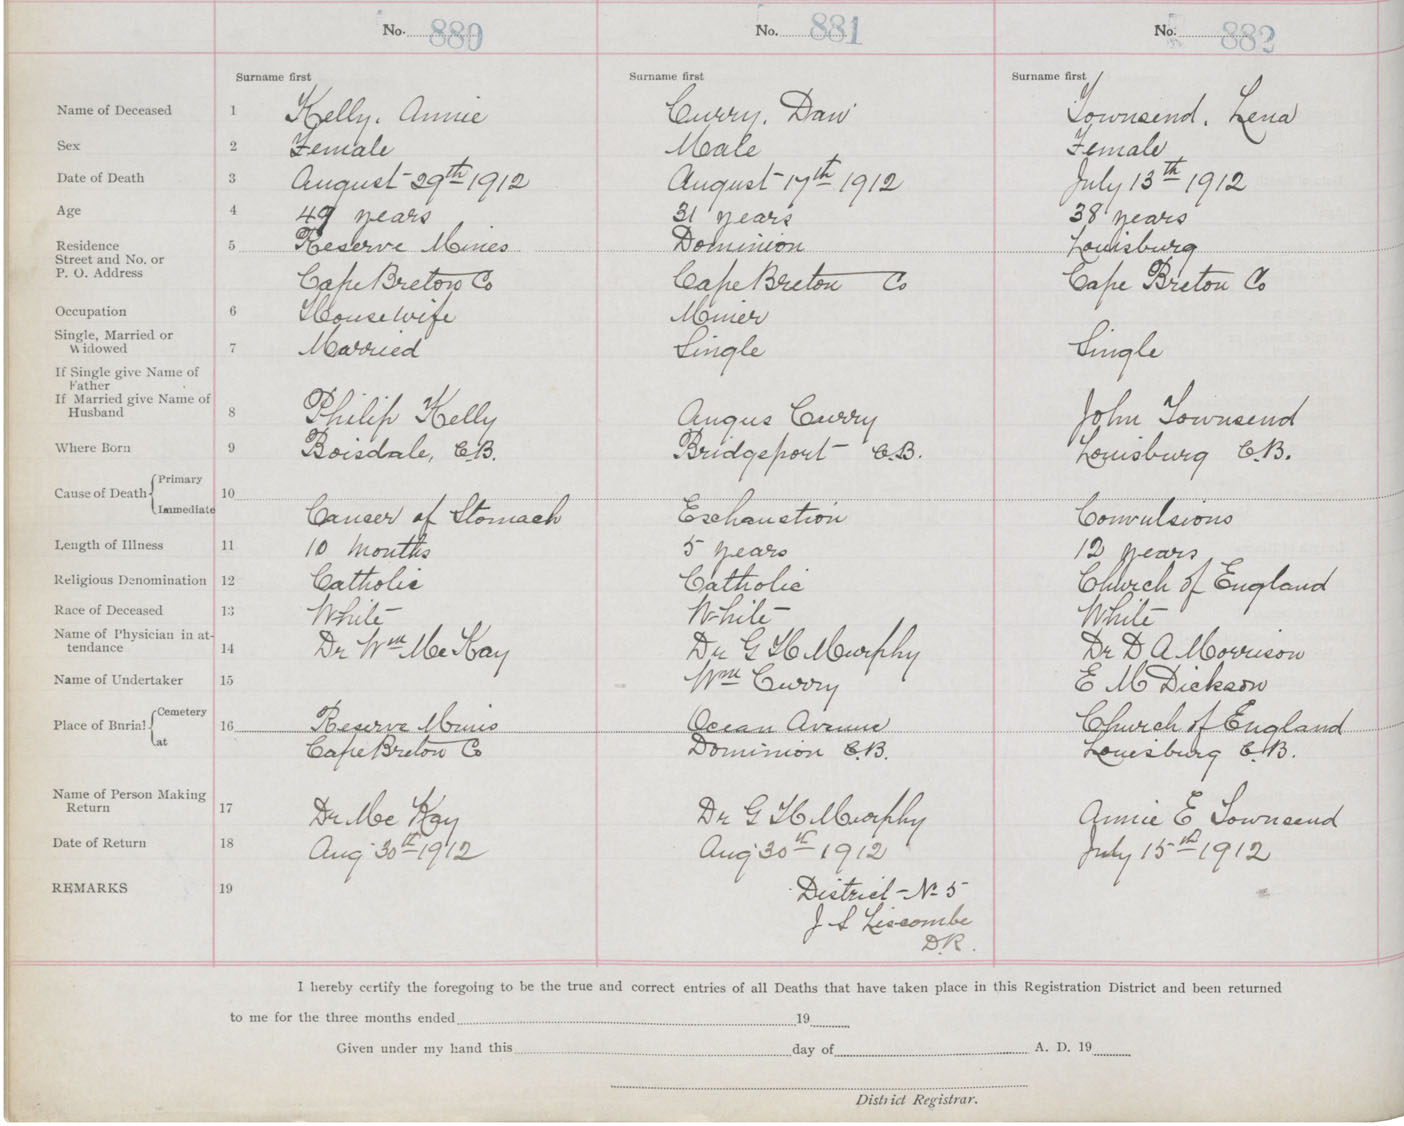 No. 880 No. 881 No. 882
Surname first Surname first Surname first
Name of Deceased 1 Kelly, Annie Curry, Dan Townsend, Lena
Sex 2 Female Male Female
Date of Death 3 August 29th 1912 August 17th 1912 July 13th 1912
Age 4 49 years 31 years 38 years
Residence 5 Reserve Mines Dominion Louisburg
Street and No. or
P. O. Address Cape Breton Co Cape Breton Co Cape Breton Co
Occupation 6 Housewife Miner
Single, Married or
Widowed 7 Married Single Single
If Single give Name of
Father
If Married give Name of
Husband 8 Philip Kelly Angus Curry John Townsend
Where Born 9 Boisdale, C.B. Bridgeport C.B. Louisburg C.B.
Cause of Death Primary 10
Immediate Cancer of Stomach Exhaustion Convulsions
Length of Illness 11 10 months 5 years 12 years
Religious Denomination 12 Catholic Catholic Church of England
Race of Deceased 13 White White White
Name of Physician in at-
tendance 14 Dr Wm McKay Dr G H Murphy Dr D A Morrison
Name of Undertaker 15 Wm Curry E M Dickson
Place of Burial Cemetery 16 Reserve Mines Ocean Avenue Church of England
at Cape Breton Co Dominion C.B. Louisburg C.B.
Name of Person Making
Return 17 Dr McKay Dr G H Murphy Annie E Townsend
Date of Return 18 Aug 30th 1912 Aug 30th 1912 July 15th 1912
REMARKS 19 District No 5
J S Liscombe
D.R.
I hereby certify the foregoing to be the true and correct entries of all Deaths that have taken place in this Registration District and been returned
to me for the three months ended 19
Given under my hand this day of A. D. 19
District Registrar.